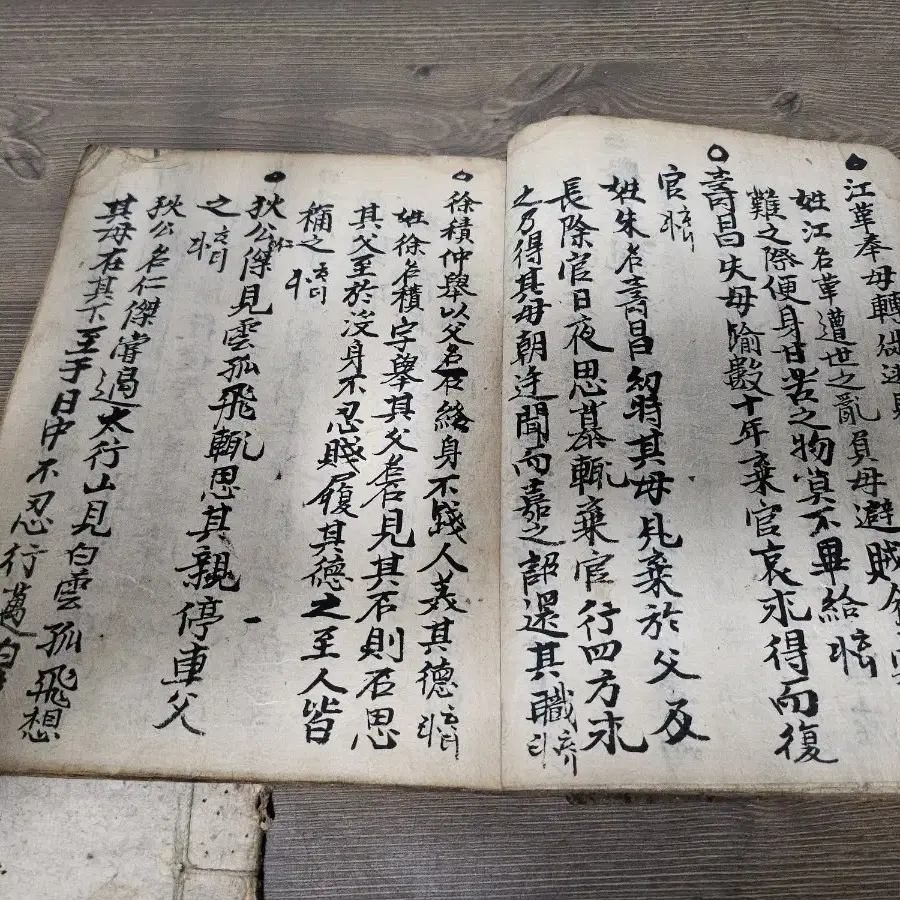 江革奉母轉
姓江名革遭世之亂負母避賊
難之際便身甘苦之物莫不畢給
壽昌失母隃數十年棄官哀求得而復
官
姓朱名壽昌幼時其母見棄於父及
長除官日夜思慕輒棄官行四方求
之乃得其母朝廷聞而嘉之詔還其職
徐積仲舉以父名石終身不踐人美其德
姓徐名積字舉其父名石見其石則石思
其父至於沒身不忍賤履其德之至人皆
稱之
狄公傑見雲孤飛輒思其親停車父
仁
之
狄公名仁傑嘗過太行山見白雲孤飛想
其母在其下至于日中不忍行